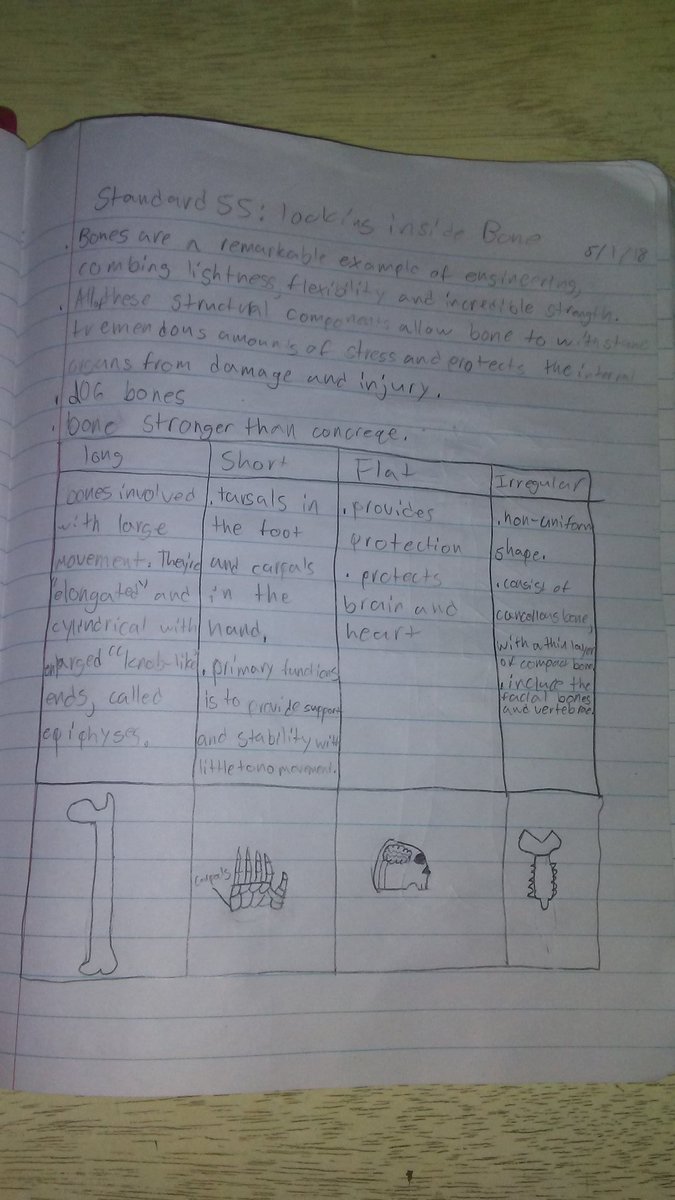 Standard 55: looking inside Bone
5/1/18
. Bones are a remarkable example of engineering,
combing lightness, flexiblity and incredible strength.
. All these structural components allow bone to withstand
tremendous amounts of stress and protects the internal
organs from damage and injury.
. 206 bones
. bone stronger than concreqe.
long
bones involved
with large
movement. They're
"elongated" and
cylindrical with
enlarged "knob-like"
ends, called
epiphyses.
Short
. tarsals in
the foot
and carpals
in the
hand.
. primary functions
is to provide support
and stability with
little to no movement.
Flat
. provides
protection
. protects
brain and
heart
Irregular
. non-uniform
shape.
. consist of
cancellous bone,
with a thin layer
of compact bone
. include the
facial bones
and vertebrae.
carpals